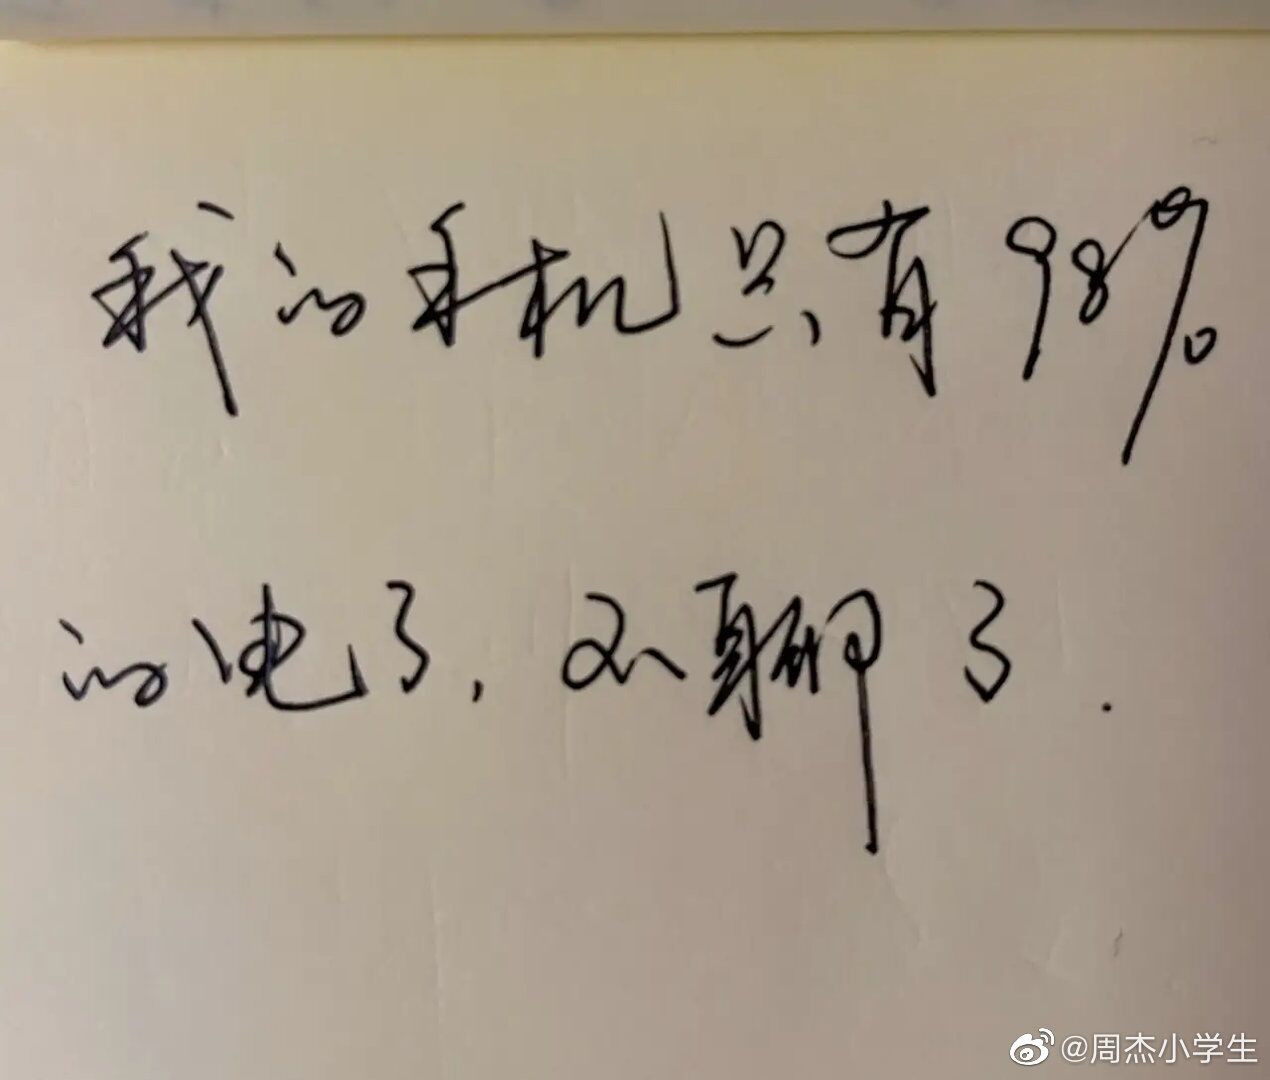 我的手机只有98%
的电了,不聊了.
@周杰小学生